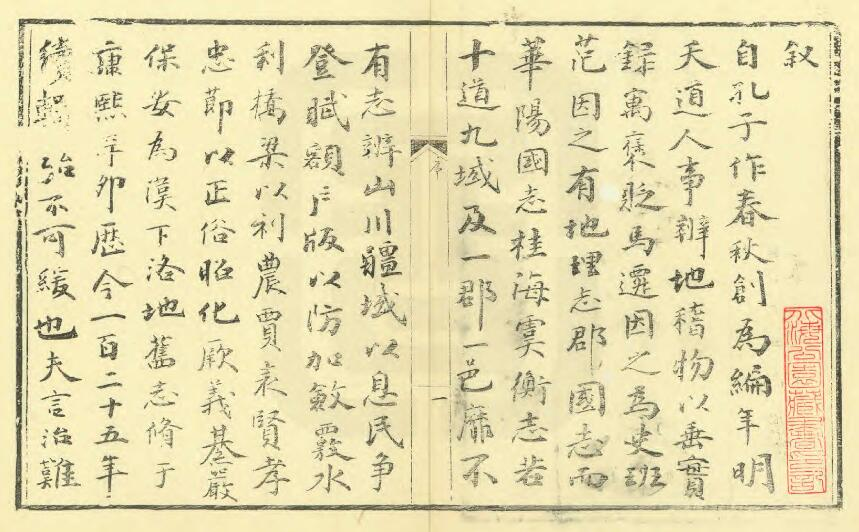 叙
自孔子作春秋創為編年明
天道人事辨地稽物以垂實
錄寓褒貶馬遷因之為史班
范因之有地理志郡國志而
華陽國志桂海虞衡志若
十道九域及一郡一邑靡不
序
一
有志辨山川疆域以息民争
登賦額戶版以防加斂覈水
利橋梁以利農賈表賢孝
忠節以正俗昭化厥義綦嚴
保安為漢下洛地舊志脩于
康熙辛卯歷今一百二十五年
續輯殆不可緩也夫言治難